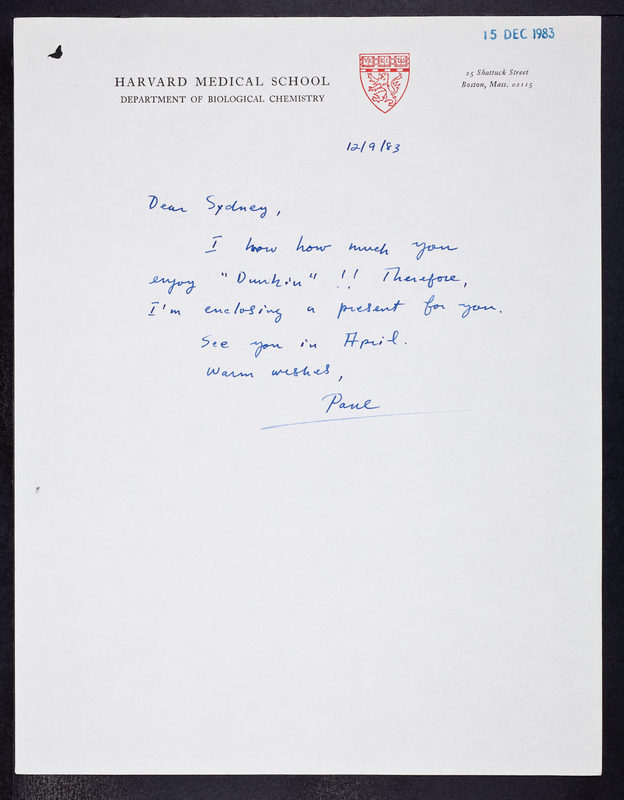 15 DEC 1983
HARVARD MEDICAL SCHOOL
DEPARTMENT OF BIOLOGICAL CHEMISTRY
VE RI TAS
25 Shattuck Street
Boston, Mass. 02115
12/9/83
Dear Sydney,
I know how much you
enjoy "Dunkin" !! Therefore,
I'm enclosing a present for you.
See you in April.
Warm wishes,
Paul